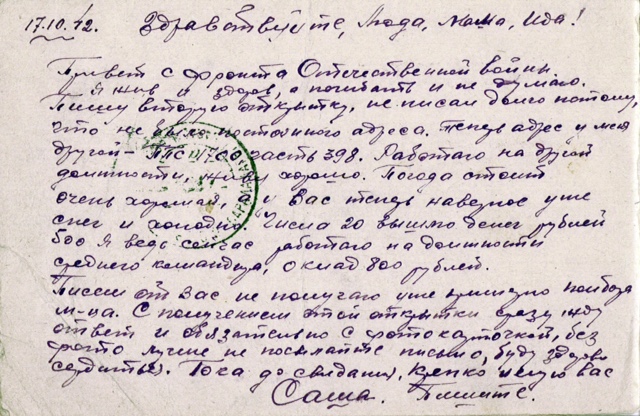 17.10.42. Здравствуйте, Люда, Мама, Ида!
Привет с фронта Отечественной войны.
Я жив и здоров, а погибать и не думаю.
Пишу вторую открытку, не писал долго потому,
что не было постоянного адреса. Теперь адрес у меня
другой - ППС 1700 часть 398. Работаю на другой
должности, живу хорошо. Погода стоит
очень хорошая, а у Вас теперь наверное уже
снег и холодно. Числа 20 вышлю денег рублей
500 Я ведь сейчас работаю на должности
среднего командира, оклад 800 рублей.
Писем от Вас не получаю уже примерно полтора
м-ца. С получением этой открытки сразу жду
ответ и обязательно с фотокарточкой, без
фото лучше не посылайте письмо, буду здорово
сердиться. Пока до свидания, крепко целую вас
Саша. Пишите.